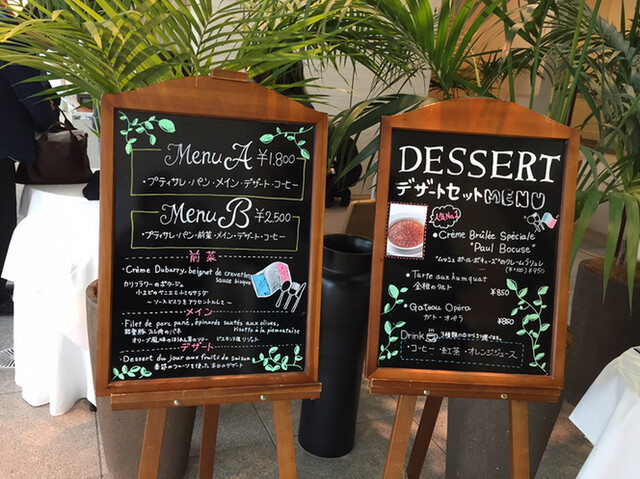 Menu A ¥1.800
・プティサレ・パン・メイン・デザート・コーヒー
Menu B ¥2.500
・プティサレ・パン・前菜・メイン・デザート・コーヒー
前菜
・Crème Dubarry, beignet de crevettes
sauce bisque
カリフラワーのポタージュ
小エビのベニエとふきのとうサラダ
メイン
・Filet de porc pané, épinards sautés aux olives,
risotto à la piémontaise
オリーブ風味のほうれん草のソテー ピエモンテ風リゾット
デザート
・Dessert du jour aux fruits de saison
季節のフルーツを使った本日のデザート
DESSERT
デザートセット MENU
人気No.1
・Crème Brûlée Spéciale
"Paul Bocuse"
"ムッシュ ポール・ボキューズ"のクレームブリュレ
¥950
・Tarte aux kumquat
金柑のタルト ¥850
・Gateau Opéra
ガトーオペラ ¥850
Drink 3種類の中からお選び頂けます。
・コーヒー・紅茶・オレンジジュース